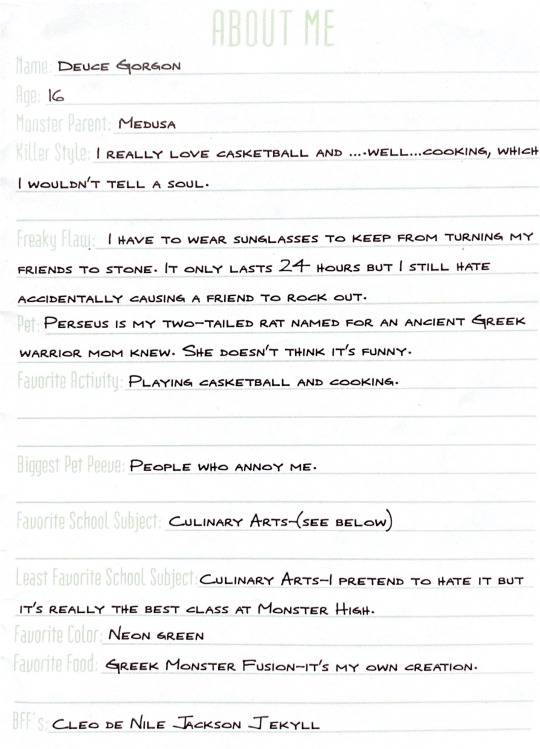 ABOUT ME
Name: Deuce Gorgon
Age: 16
Monster Parent: Medusa
Killer Style: I really love casketball and ....well...cooking, which
I wouldn't tell a soul.
Freaky Flaw: I have to wear sunglasses to keep from turning my
friends to stone. It only lasts 24 hours but I still hate
accidentally causing a friend to rock out.
Pet: Perseus is my two-tailed rat named for an ancient Greek
warrior mom knew. She doesn't think it's funny.
Favorite Activity: Playing casketball and cooking.
Biggest Pet Peeve: People who annoy me.
Favorite School Subject: Culinary Arts-(see below)
Least Favorite School Subject: Culinary Arts-I pretend to hate it but
it's really the best class at Monster High.
Favorite Color: Neon green
Favorite Food: Greek Monster Fusion-it's my own creation.
BFF's: Cleo de Nile Jackson Jekyll